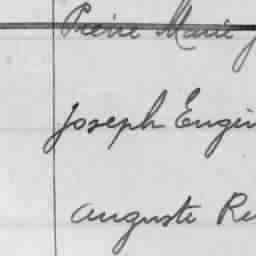 Pierre Marie J
Joseph Eugèn
Auguste Re